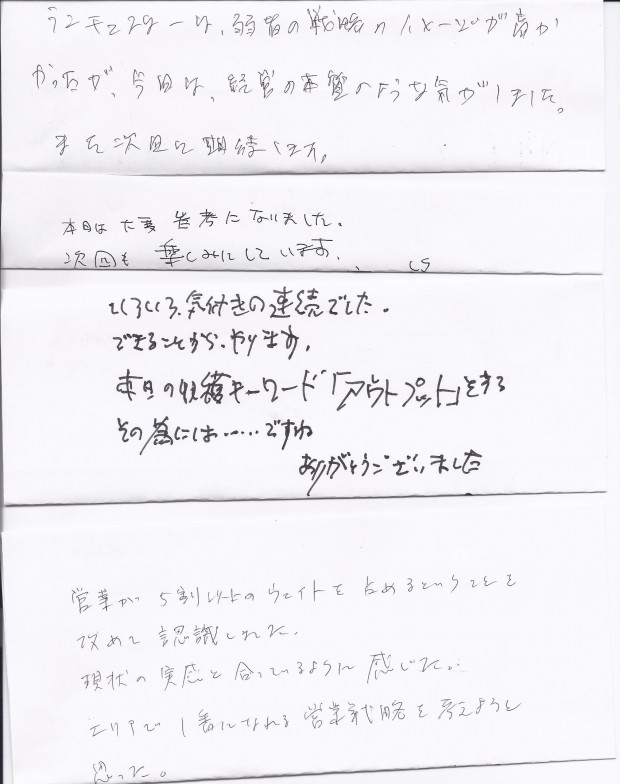 ランチェスターは、弱者の戦略のイメージが高か
かったが、今日は、経営の本質のような気がしました。
また次回に期待します。
本日は大変参考になりました。
次回も楽しみにしています。
いろいろ、気付きの連続でした。
できることから、やります。
本日の収穫キーワード「アウトプット」をする
その為には……ですね
ありがとうございました
営業が5割以上のウェイトを占めるということを
改めて認識しました。
現状の実感と合っているように感じた。
エリアで1番になれる営業戦略を考えようと
思った。